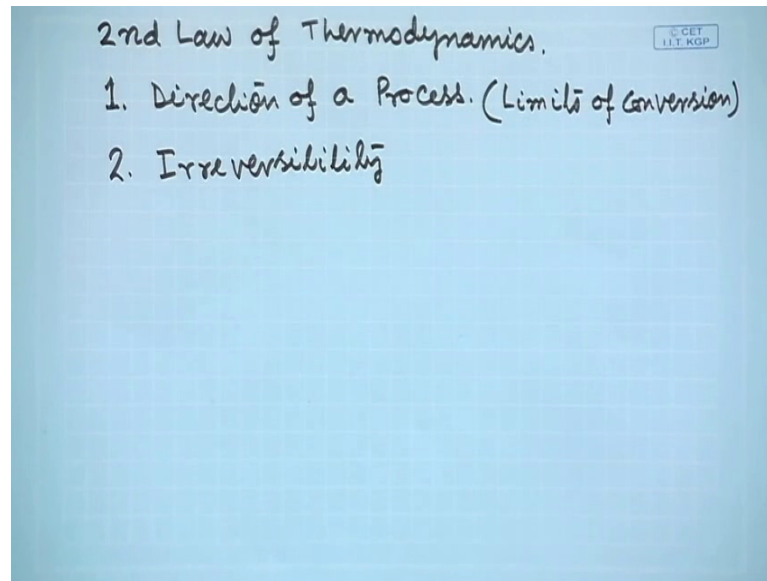 2nd Law of Thermodynamics.
© CET
I.I.T. KGP
1. Direction of a Process. (Limits of Conversion)
2. Irreversibility